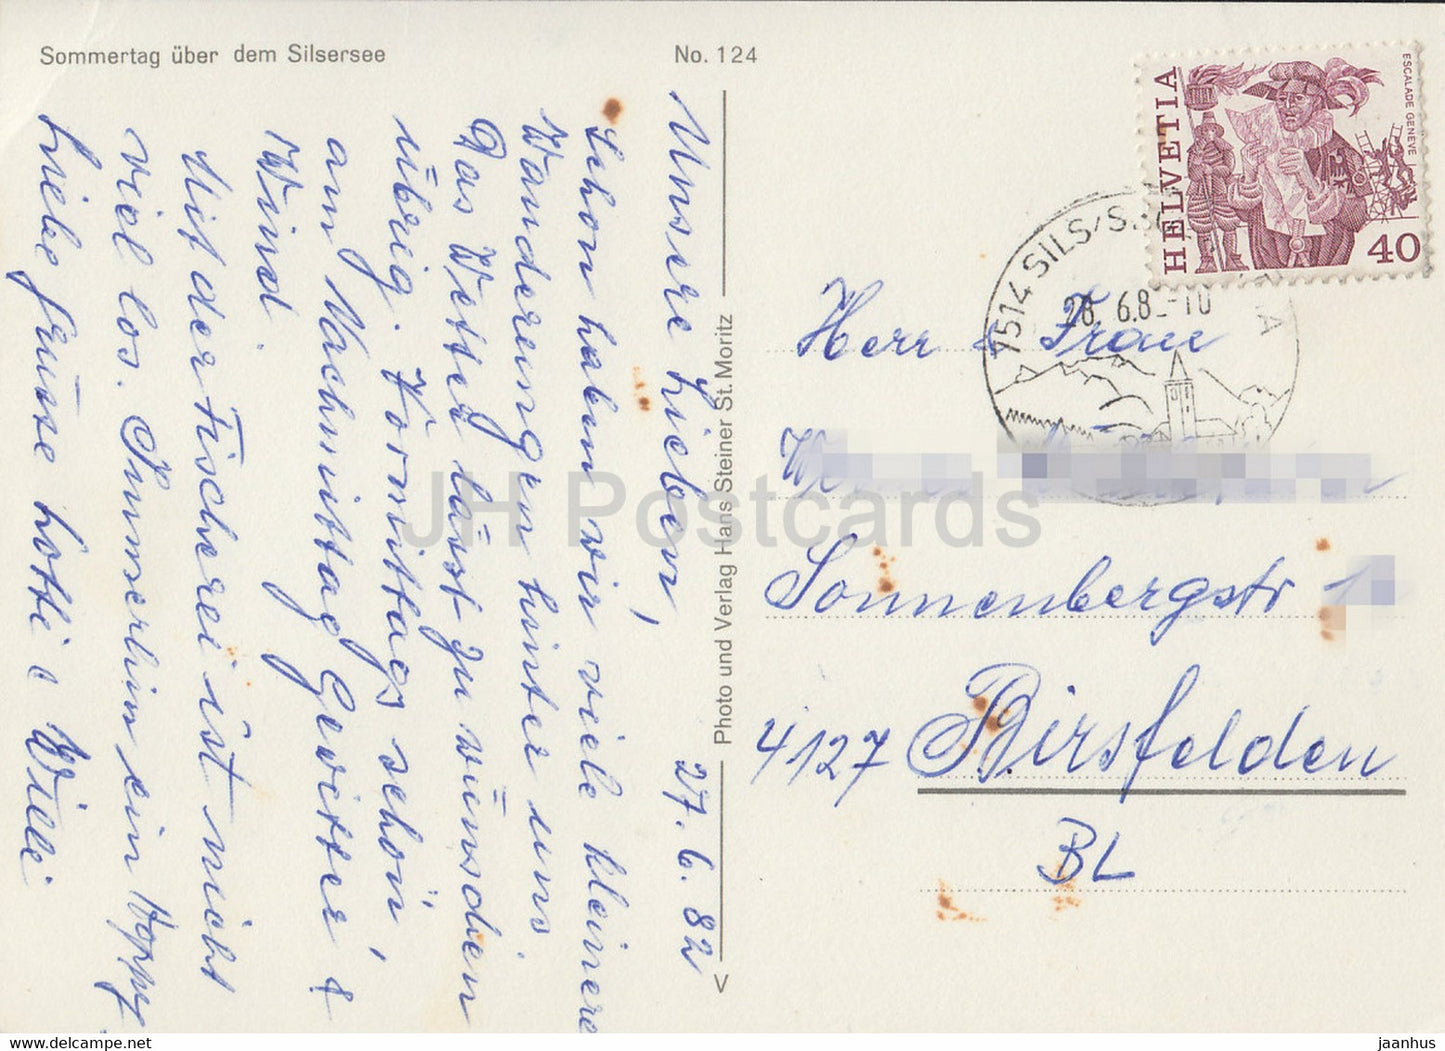 Sommertag über dem Silsersee
No. 124
HELVETIA
ESCALADE GENÈVE
40
7514 SILS/S.
28. 6.8 -10
Unsere Lieben,
27. 6. 82
Schon haben wir viele kleinere
Wanderungen hinter uns.
Das Wetter lässt zu wünschen
übrig. Vormittags schön,
am Nachmittag Gewitter &
Wind.
Mit der Fischerei ist nicht
viel los. Simmerlin ein
Liebe Grüsse Lotti & Willi
Photo und Verlag Hans Steiner St. Moritz
Herr & Frau
Sonnenbergstr
4127 Birsfelden
BL
JH Postcards
www.jhpostcard.com
jaanhus